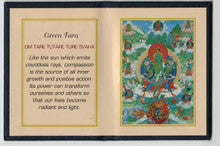 Green Tara
OM TARE TUTARE TURE SVAHA
Like the sun which emits
countless rays, compassion
is the source of all inner
growth and positive action.
Its power can transform
ourselves and others so
that our lives become
radiant and light.